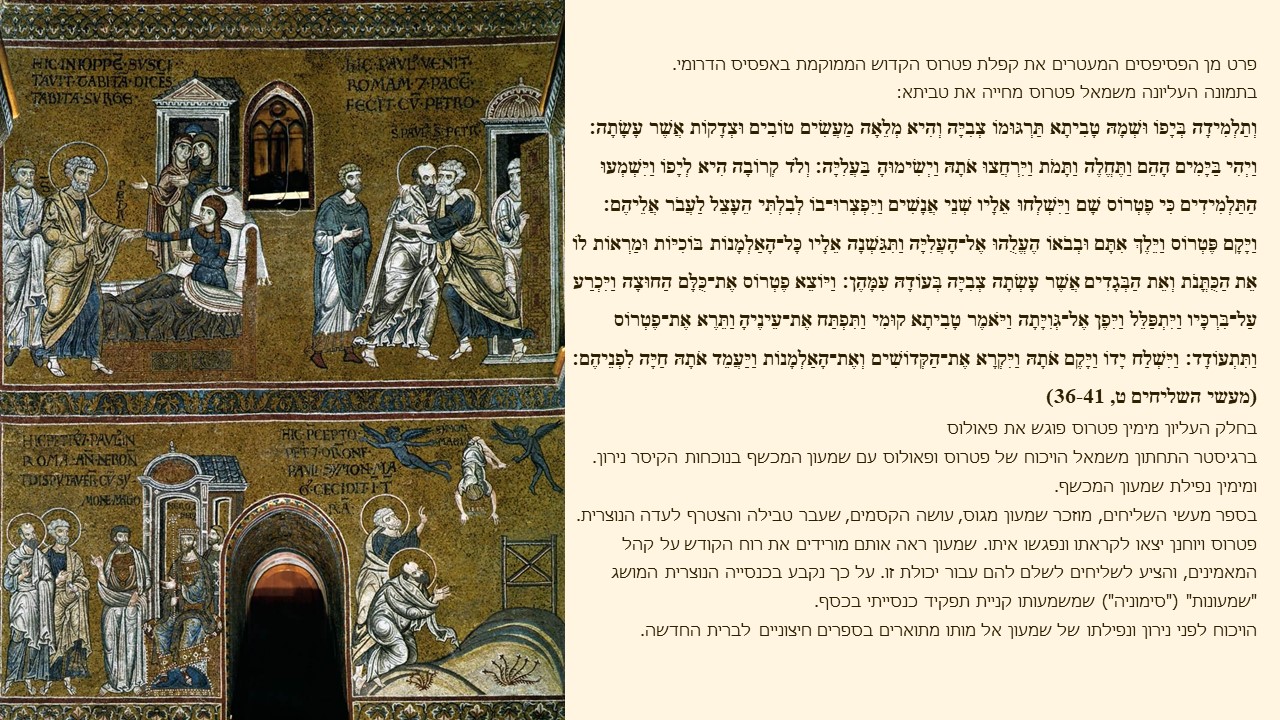 HIC IN IOPPE SVSCI
TAVIT TABITA DICES
TABITA SVRGE
HIC PAVL VENIT
ROMAM 7 PACE
FECIT CV PETRO
S PAVL S PETR
HIC PETR 7 PAVL IN
ROMA AN NERON
DISPVTAVER CV SY
MONE MAGO
HIC PCEPTO
PET 7 ORONE
PAVL SYMON MA
G CECIDIT I T
RA
פרט מן הפסיפסים המעטרים את קפלת פטרוס הקדוש הממוקמת באפסיס הדרומי.
בתמונה העליונה משמאל פטרוס מחייה את טביתא:
וְתַלְמִידָה בְּיָפוֹ וּשְׁמָהּ טָבִיתָא תַּרְגּוּמוֹ צְבִיָּה וְהִיא מְלֵאָה מַעֲשִׂים טוֹבִים וּצְדָקוֹת אֲשֶׁר עָשָׂתָה:
וַיְהִי בַּיָּמִים הָהֵם וַתֶּחֱלֶה וַתָּמֹת וַיִּרְחֲצוּ אֹתָהּ וַיְשִׂימוּהָ בַּעֲלִיָּה: וְלֹד קְרוֹבָה הִיא לְיָפוֹ וַיִּשְׁמְעוּ
הַתַּלְמִידִים כִּי פֶטְרוֹס שָׁם וַיִּשְׁלְחוּ אֵלָיו שְׁנֵי אֲנָשִׁים וַיִּפְצְרוּ־בוֹ לְבִלְתִּי הֵעָצֵל לַעֲבֹר אֲלֵיהֶם:
וַיָּקָם פֶּטְרוֹס וַיֵּלֶךְ אִתָּם וּבְבֹאוֹ הֶעֱלֻהוּ אֶל־הָעֲלִיָּה וַתִּגַּשְׁנָה אֵלָיו כָּל־הָאַלְמָנוֹת בּוֹכִיּוֹת וּמַרְאוֹת לוֹ
אֵת הַכֻּתֳּנֹת וְאֵת הַבְּגָדִים אֲשֶׁר עָשְׂתָה צְבִיָּה בְּעוֹדָהּ עִמָּהֶן: וַיּוֹצֵא פֶטְרוֹס אֶת־כֻּלָּם הַחוּצָה וַיִּכְרַע
עַל־בִּרְכָּיו וַיִּתְפַּלֵּל וַיִּפֶן אֶל־גְּוִיָּתָהּ וַיֹּאמֶר טָבִיתָא קוּמִי וַתִּפְתַּח אֶת־עֵינֶיהָ וַתֵּרֶא אֶת־פֶּטְרוֹס
וַתִּתְעוֹדָד: וַיִּשְׁלַח יָדוֹ וַיָּקֶם אֹתָהּ וַיִּקְרָא אֶת־הַקְּדוֹשִׁים וְאֶת־הָאַלְמָנוֹת וַיַּעֲמֵד אֹתָהּ חַיָּה לִפְנֵיהֶם:
(מעשי השליחים ט, 36-41)
בחלק העליון מימין פטרוס פוגש את פאולוס
ברגיסטר התחתון משמאל הויכוח של פטרוס ופאולוס עם שמעון המכשף בנוכחות הקיסר נירון.
ומימין נפילת שמעון המכשף.
בספר מעשי השליחים, מוזכר שמעון מגוס, עושה הקסמים, שעבר טבילה והצטרף לעדה הנוצרית.
פטרוס ויוחנן יצאו לקראתו ונפגשו איתו. שמעון ראה אותם מורידים את רוח הקודש על קהל
המאמינים, והציע לשליחים לשלם להם עבור יכולת זו. על כך נקבע בכנסייה הנוצרית המושג
"שמעונות" ("סימוניה") שמשמעותו קניית תפקיד כנסייתי בכסף.
הויכוח לפני נירון ונפילתו של שמעון אל מותו מתוארים בספרים חיצוניים לברית החדשה.